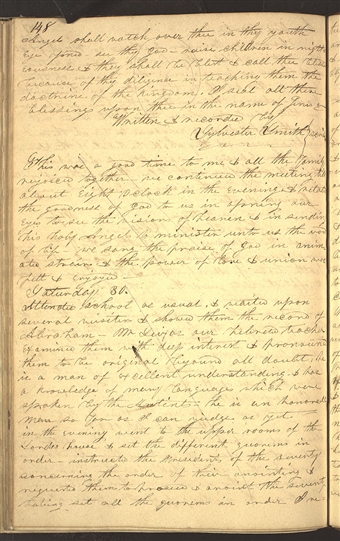 148
Angels shall watch over thee in thy youth
Eye for see thy God raise children in right
eousness & they shall be blest & call thee blest
because of thy diligence in teaching them the
doctrine of the kingdom. I seal all these
blessings upon thee in the name of Jesus
Written & recorded by
Sylvester Smith
This was a good time to me & all the family
rejoiced together we continued the meeting till
about Eight o clock in the Evening & related
the goodness of God to us in opening our
Eyes to see the visions of heaven & in sending
his holy Angels to minister unto us the word
of life we sang the praise of God in anim
ated strains & the power of love & union was
felt & enjoyed
Saturday 30.
Attended school as usual. & waited upon
several visitors & showed them the record of
Abraham - Mr Seixas our hebrew teacher
Examined them with deep interest & pronounced
them to be original beyound all doubt, He
is a man of excellent understanding - & has
a knowledge of many languages which were
spoken by the Antints - he is an honorable
man so far as I can judge as yet
in the evening went to the upper rooms of the
Lords house & set the different quorems in
order - instructed the Presidents of the seventy
concerning the order of their anointing &
requested them to proceed & anoint the seventy
having set all the quorems in order I re